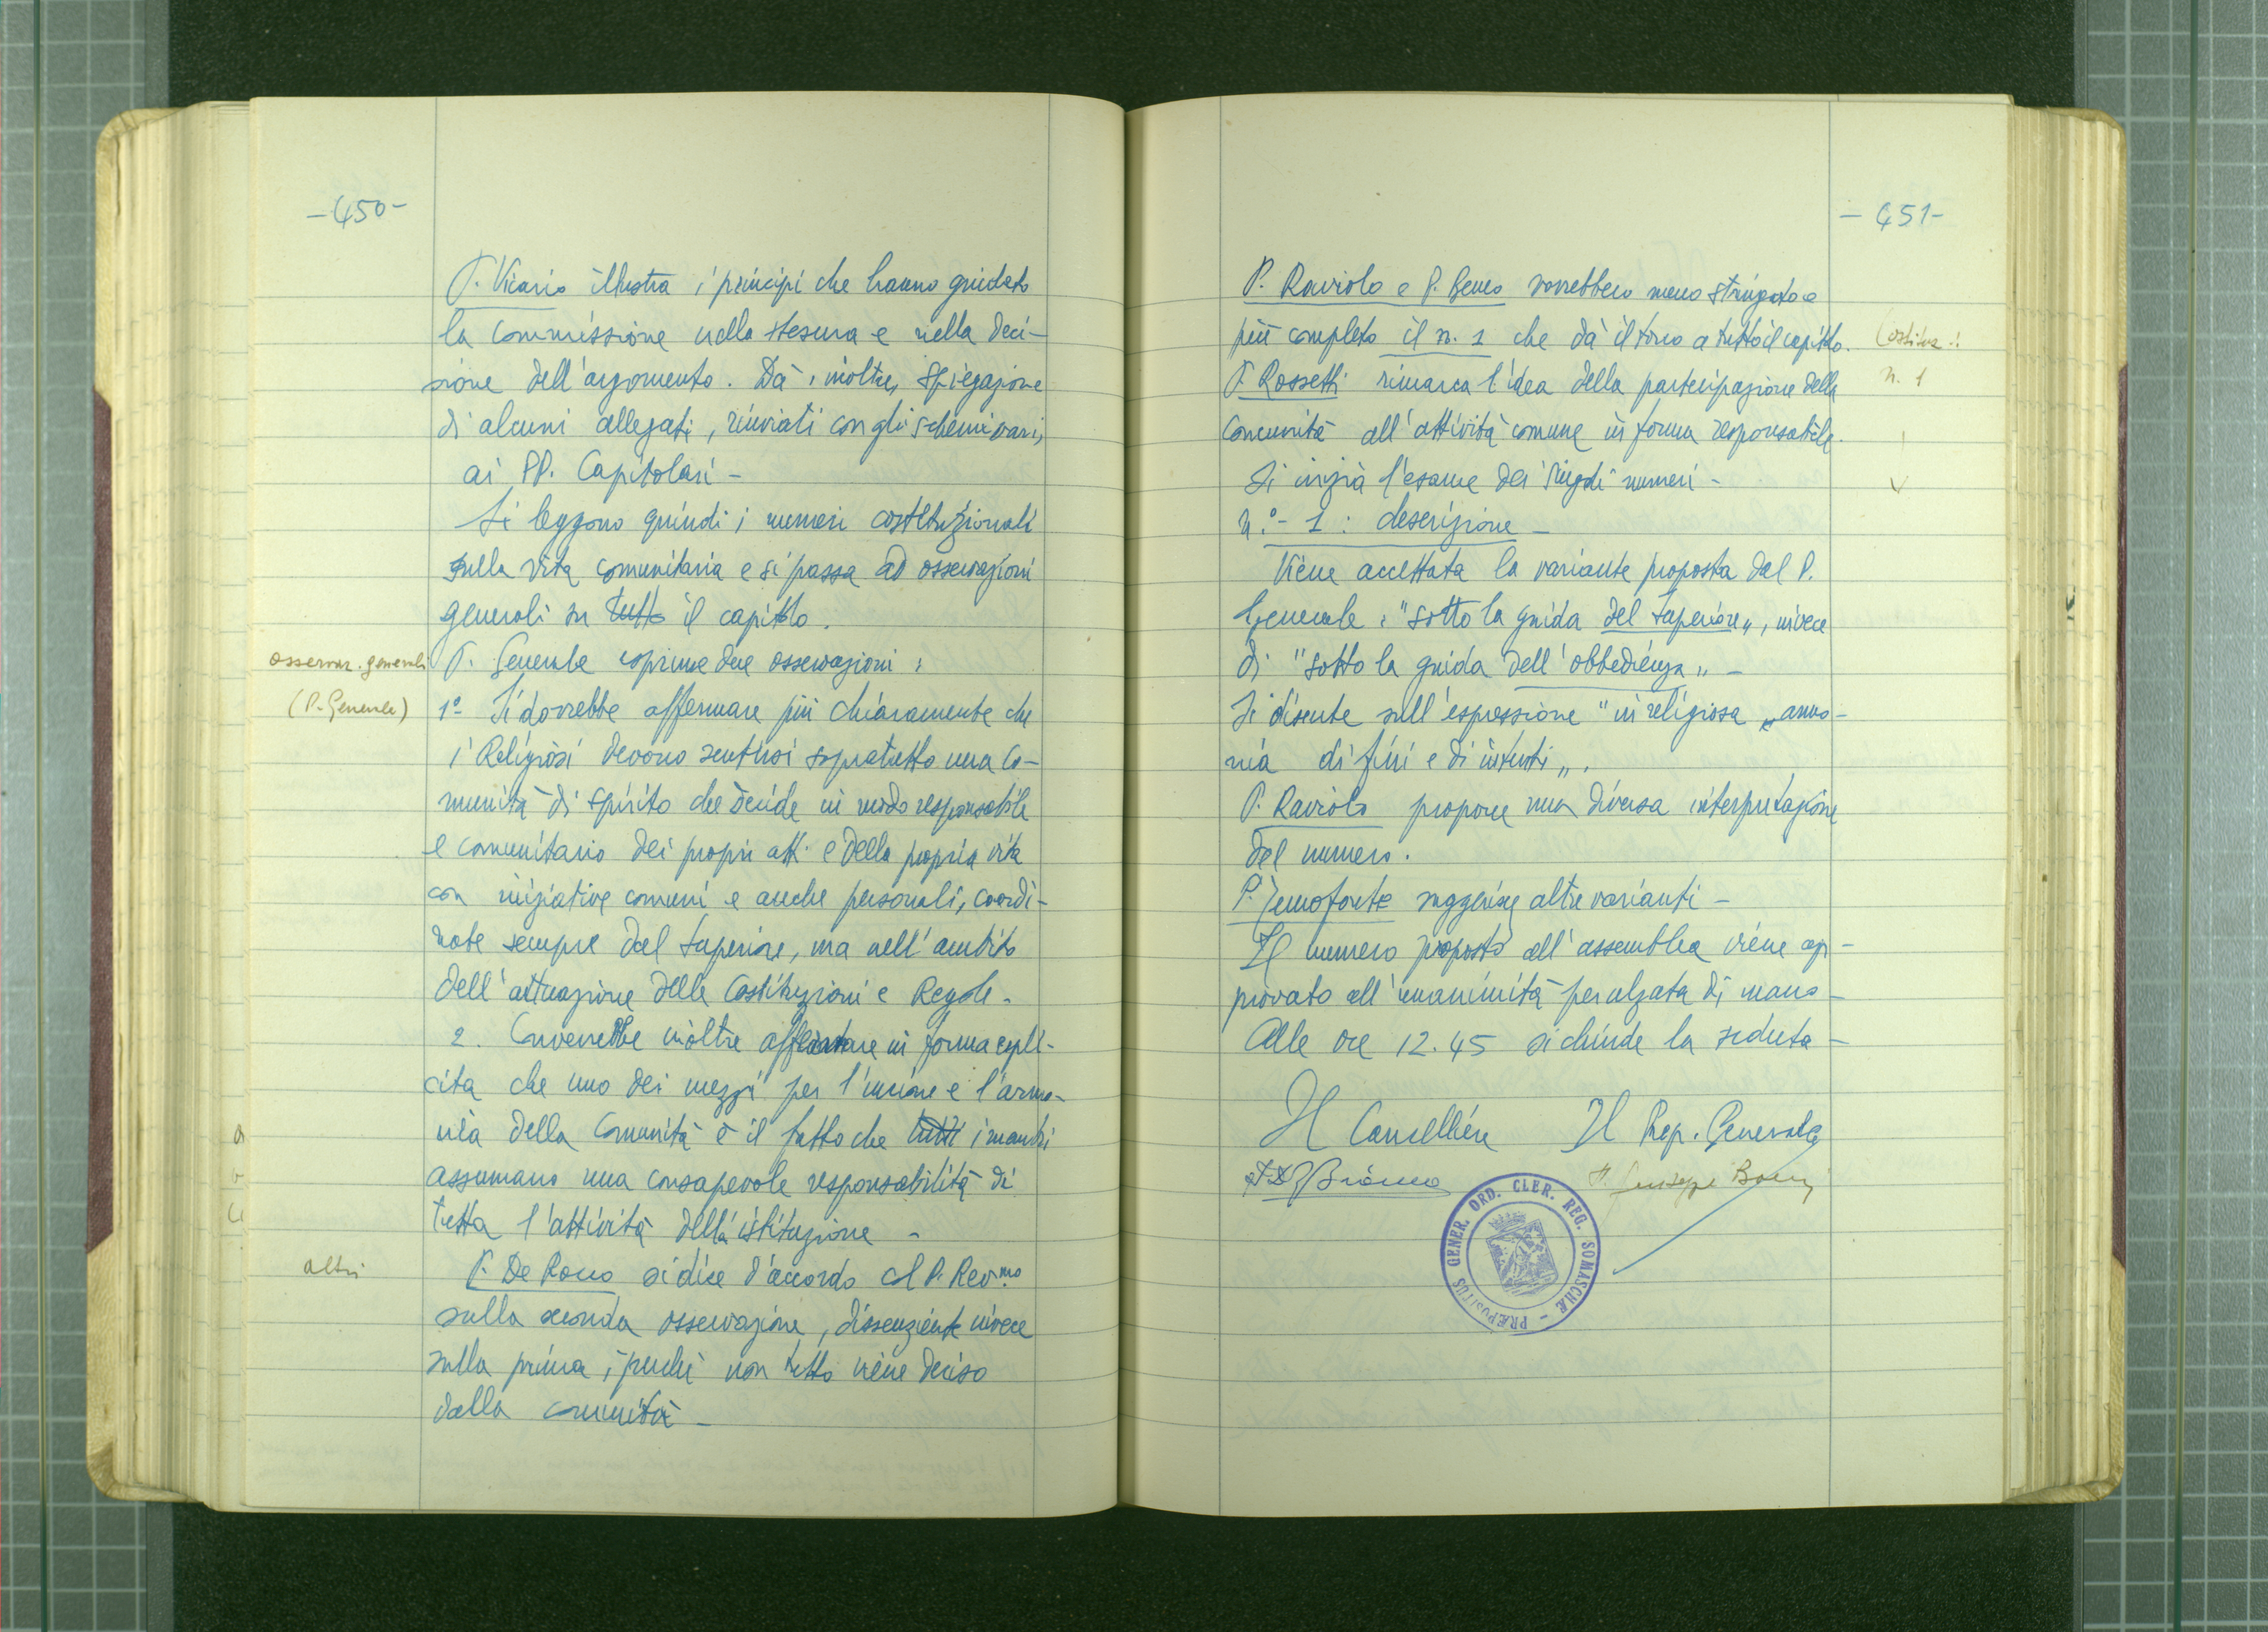 -450-
P. Vicario illustra i principi che hanno guidato
la commissione nella stesura e nella deci-
sione dell'argomento. Dà, inoltre, spiegazione
di alcuni allegati, rinviati con gli schemi vari,
ai PP. Capitolari -
Si leggono quindi i numeri costituzionali
sulla vita comunitaria e si passa ad osservazioni
generali su tutto il capitolo.
osservaz. generali
(P. Generale)
P. Generale esprime due osservazioni:
1º- Si dovrebbe affermare più chiaramente che
i Religiosi devono sentirsi sopratutto una co-
munità di spirito che decide in modo responsabile
e comunitario dei propri atti e della propria vita
con iniziative comuni e anche personali, coordi-
nate sempre dal Superiore, ma nell'ambito
dell'attuazione delle Costituzioni e Regole.
2. Converrebbe inoltre in forma espli-
cita che uno dei mezzi per l'unione e l'armo-
nia della Comunità è il fatto che tutti i membri
assumano una consapevole responsabilità di
tutta l'attività dell'istituzione -
altri
P. De Rocco si dice d'accordo col P. Rev.mo
sulla seconda osservazione, dissenziente invece
sulla prima, perché non tutto viene deciso
dalla comunità -
- 451-
P. Raviolo e P. Beneo vorrebbero meno stringato e
più completo il n. 1 che dà il tono a tutto il capitolo.
n. 1
P. Rossetti rimarca l'idea della partecipazione della
Comunità all'attività comune in forma responsabile.
Si inizia l'esame dei singoli numeri -
n.º- 1: descrizione -
Viene accettata la variante proposta dal P.
Generale: "sotto la guida del Superiore", invece
di "sotto la guida dell'obbedienza" -
Si discute sull'espressione "in religiosa armo-
nia di fini e di intenti".
P. Raviolo propone una diversa interpretazione
del numero.
P. Temofonte suggerisce altre varianti -
Il numero proposto all'assemblea viene ap-
provato all'unanimità per alzata di mano -
Alle ore 12.45 si chiude la seduta -
Il Cancelliere Il Prep. Generale
Bianco P. Giuseppe Boeri
PRÆPOSITUS GENER. ORD. CLER. REG. SOMASCHÆ -